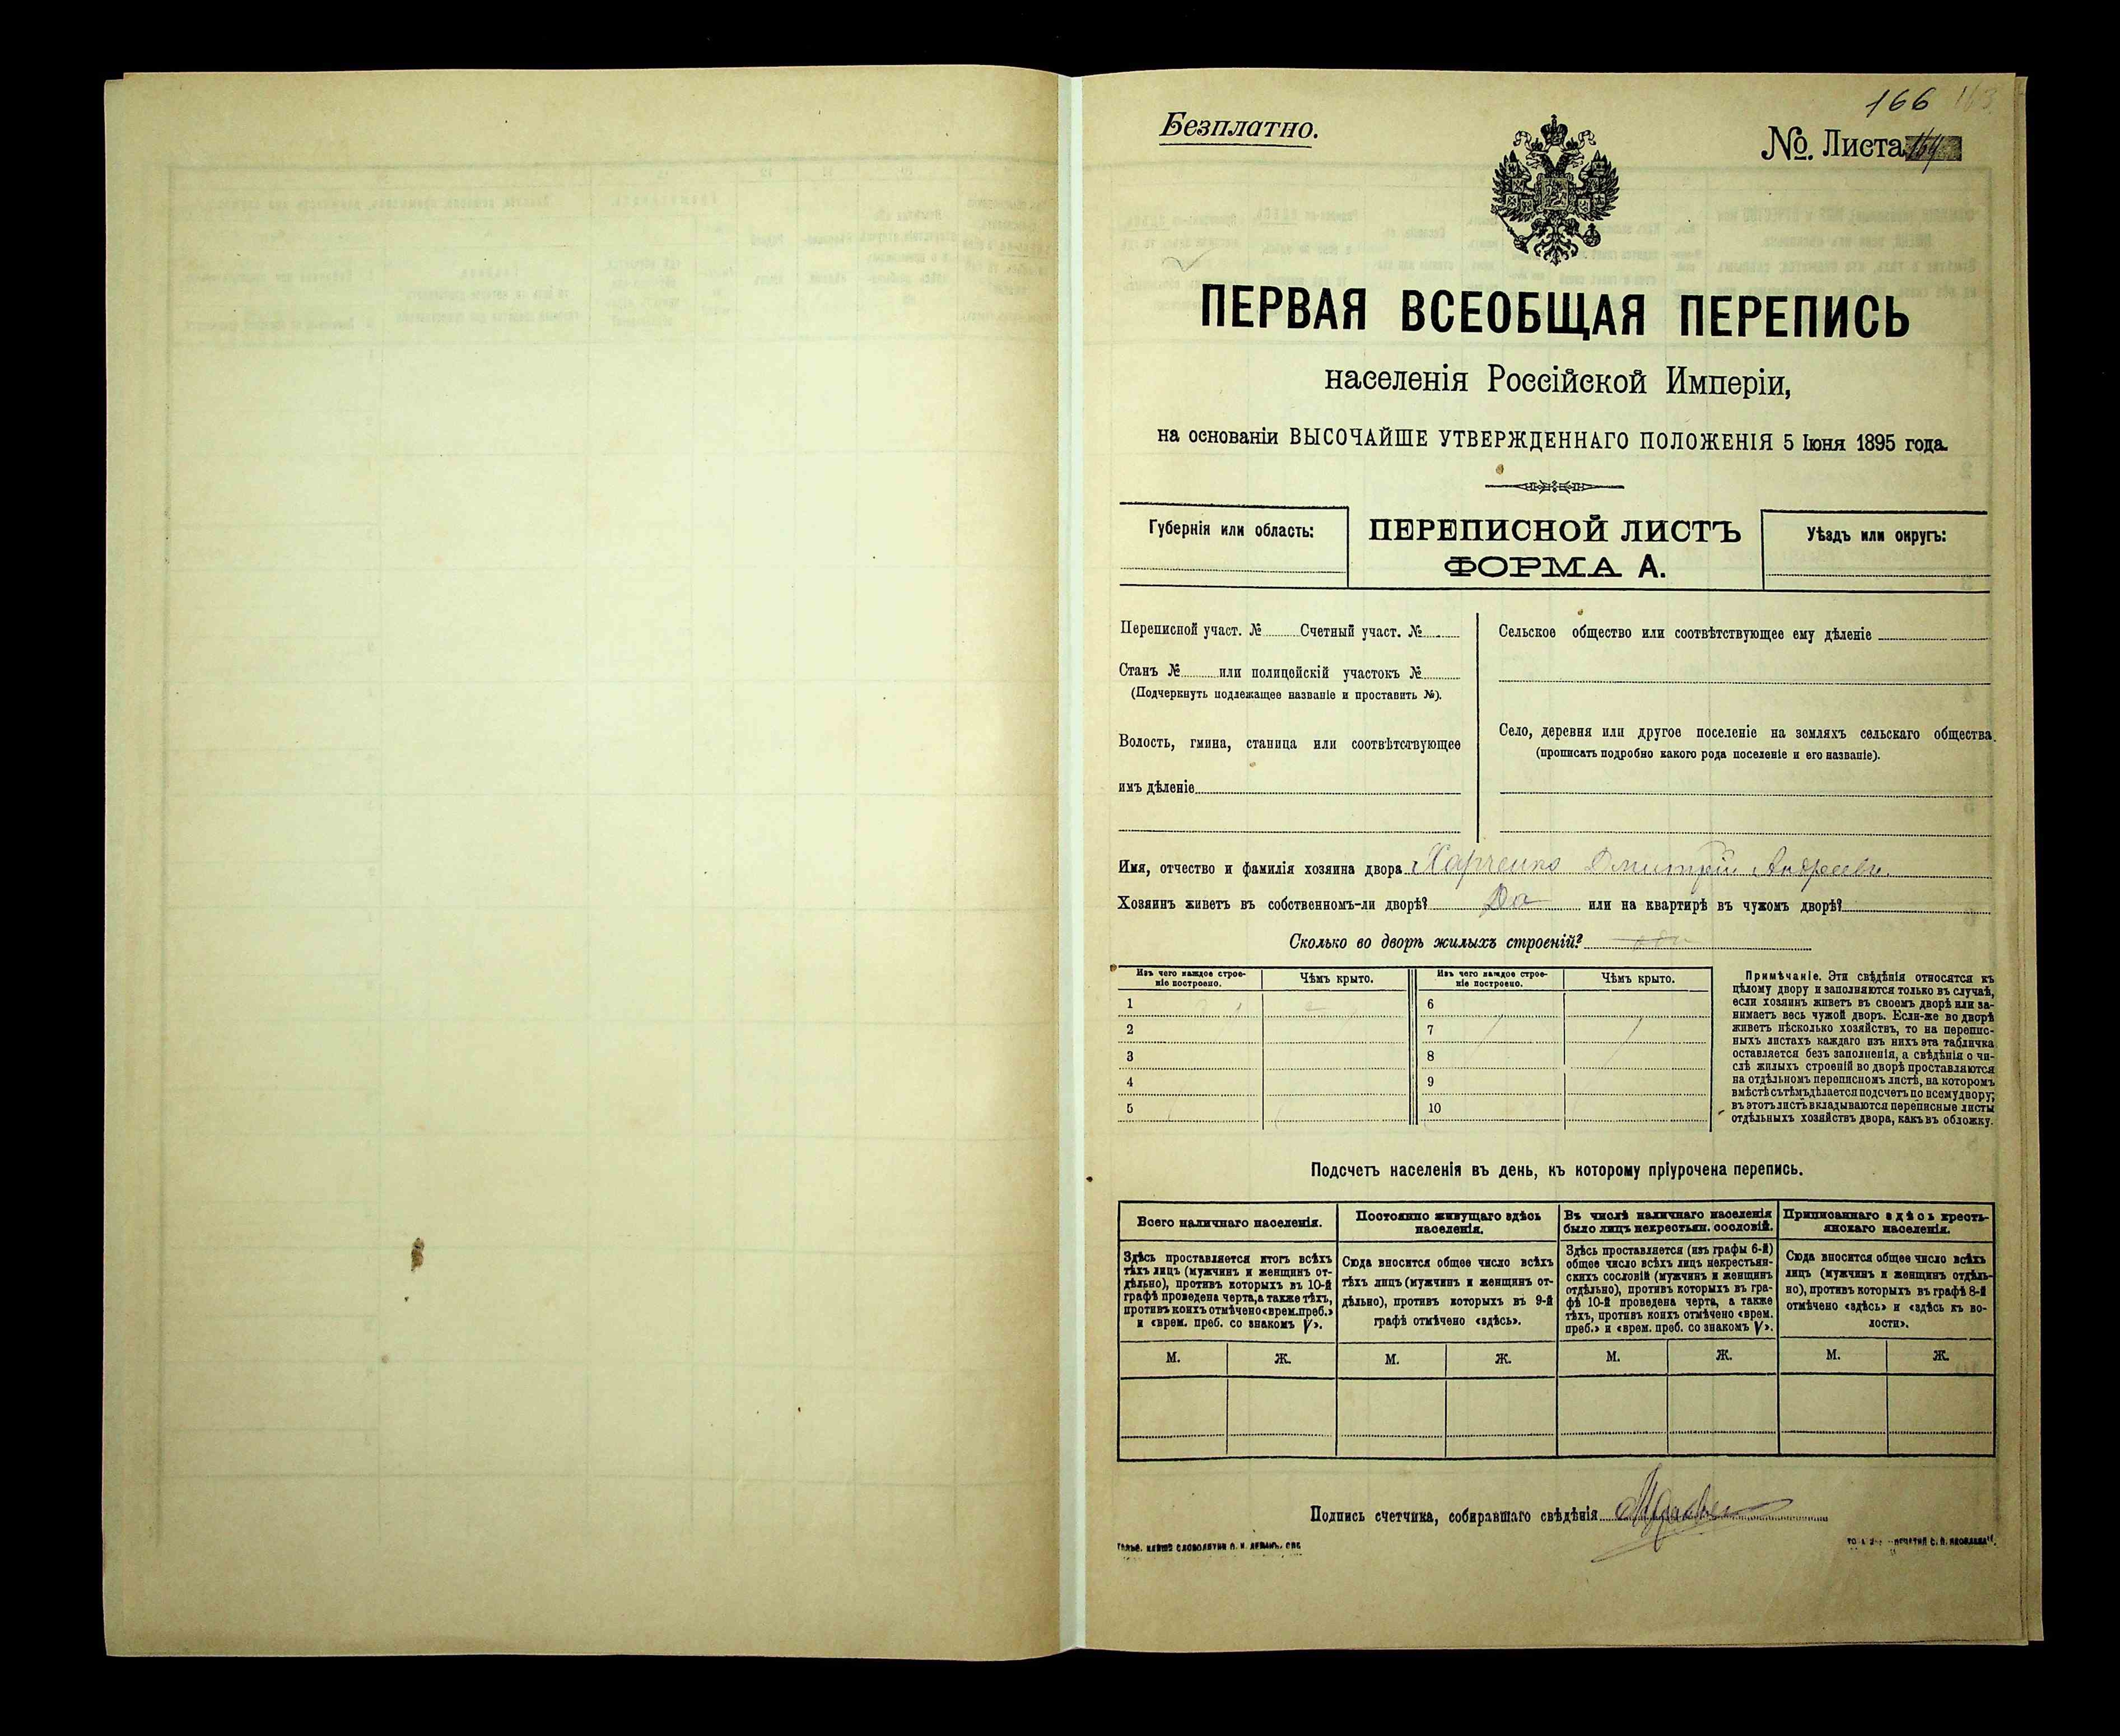 166 163
Безплатно.
№ Листа 164
ПЕРВАЯ ВСЕОБЩАЯ ПЕРЕПИСЬ
населенія Россійской Имперіи,
на основаніи ВЫСОЧАЙШЕ УТВЕРЖДЕННАГО ПОЛОЖЕНІЯ 5 Іюня 1895 года.
Губернія или область:
ПЕРЕПИСНОЙ ЛИСТЪ
ФОРМА А.
Уѣздъ или округъ:
Переписной участ. № Счетный участ. №
Станъ № или полицейскій участокъ №
(Подчеркнуть подлежащее названіе и проставить №).
Волость, гмина, станица или соотвѣтствующее
имъ дѣленіе
Сельское общество или соотвѣтствующее ему дѣленіе
Село, деревня или другое поселеніе на земляхъ сельскаго общества.
(прописать подробно какого рода поселеніе и его названіе).
Имя, отчество и фамилія хозяина двора Харченко Дмитрій Андреевъ.
Хозяинъ живетъ въ собственномъ-ли дворѣ? Да или на квартирѣ въ чужомъ дворѣ?
Сколько во дворѣ жилыхъ строеній?
Изъ чего каждое строе-
ніе построено.
Чѣмъ крыто.
Изъ чего каждое строе-
ніе построено.
Чѣмъ крыто.
1
6
2
7
3
8
4
9
5
10
Примѣчаніе. Эти свѣдѣнія относятся къ
цѣлому двору и заполняются только въ случаѣ,
если хозяинъ живетъ въ своемъ дворѣ или за-
нимаетъ весь чужой дворъ. Если-же во дворѣ
живетъ нѣсколько хозяйствъ, то на перепис-
ныхъ листахъ каждаго изъ нихъ эта табличка
оставляется безъ заполненія, а свѣдѣнія о чи-
слѣ жилыхъ строеній во дворѣ проставляются
на отдѣльномъ переписномъ листѣ, на которомъ
вмѣстѣ съ тѣмъ дѣлается подсчетъ по всему двору;
въ этотъ листъ вкладываются переписные листы
отдѣльныхъ хозяйствъ двора, какъ въ обложку.
Подсчетъ населенія въ день, къ которому пріурочена перепись.
Всего наличнаго населенія.
Постоянно живущаго здѣсь
населенія.
Въ числѣ наличнаго населенія
было лицъ некрестьян. сословій.
Приписаннаго здѣсь кресть-
янскаго населенія.
Здѣсь проставляется итогъ всѣхъ
тѣхъ лицъ (мужчинъ и женщинъ от-
дѣльно), противъ которыхъ въ 10-й
графѣ проведена черта, а также тѣхъ,
противъ коихъ отмѣчено «врем. преб.»
и «врем. преб. со знакомъ V».
Сюда вносится общее число всѣхъ
тѣхъ лицъ (мужчинъ и женщинъ от-
дѣльно), противъ которыхъ въ 9-й
графѣ отмѣчено «здѣсь».
Здѣсь проставляется (изъ графы 6-й)
общее число всѣхъ лицъ некрестьян-
скихъ сословій (мужчинъ и женщинъ
отдѣльно), противъ которыхъ въ гра-
фѣ 10-й проведена черта, а также
тѣхъ, противъ коихъ отмѣчено «врем.
преб.» и «врем. преб. со знакомъ V».
Сюда вносится общее число всѣхъ
лицъ (мужчинъ и женщинъ отдѣль-
но), противъ которыхъ въ графѣ 8-й
отмѣчено «здѣсь» и «здѣсь къ во-
лости».
М. Ж. М. Ж. М. Ж. М. Ж.
Подпись счетчика, собиравшаго свѣдѣнія